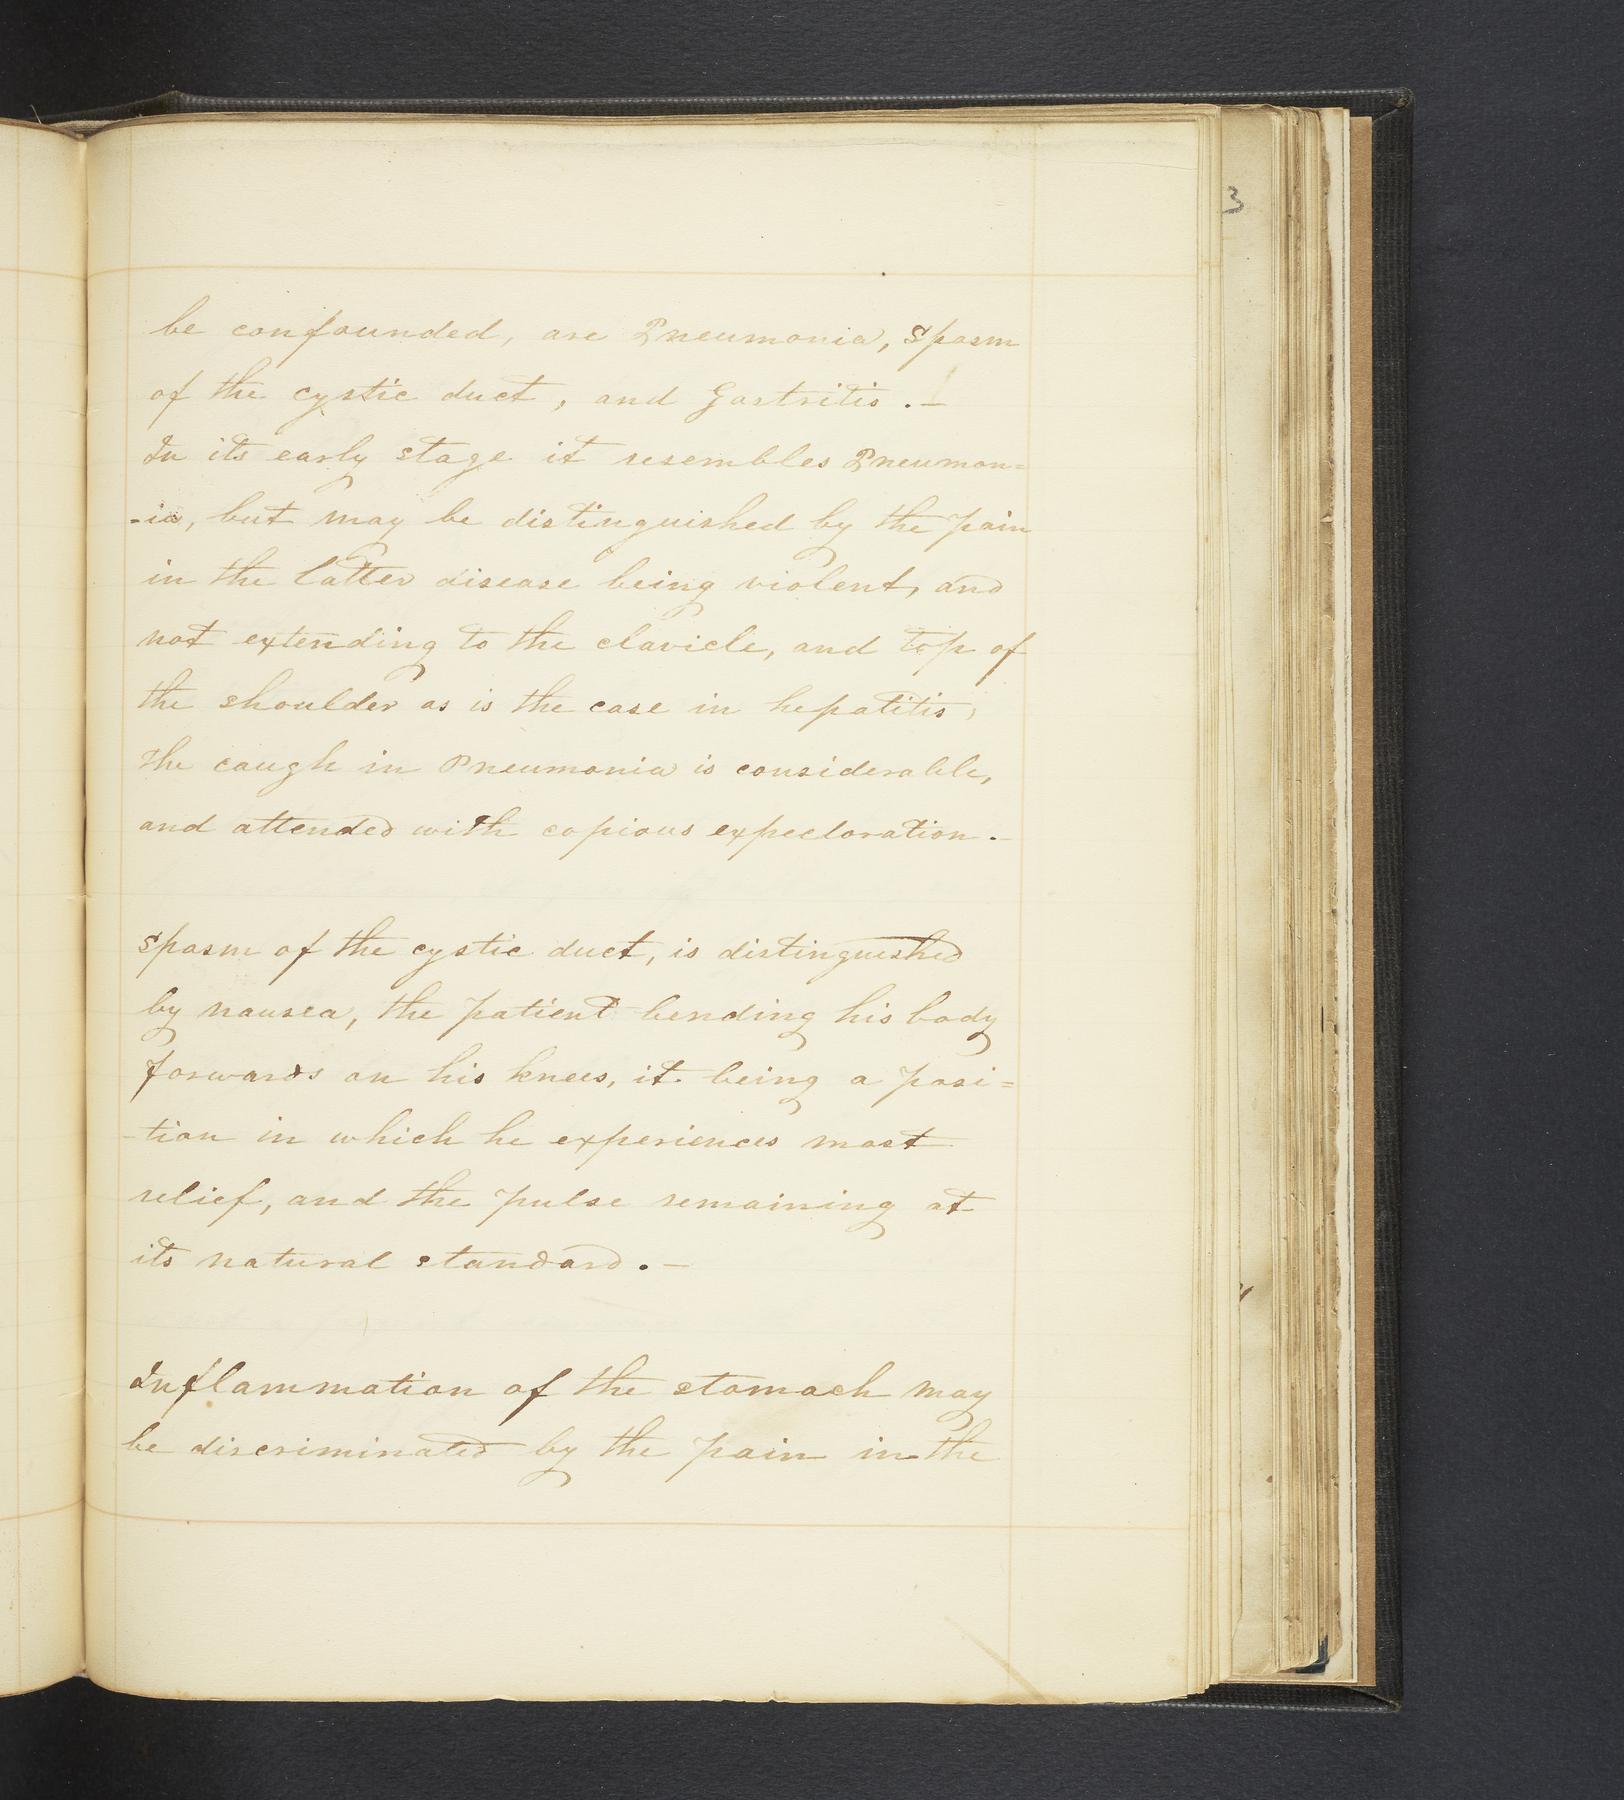 3
be confounded, are Pneumonia, Spasm
of the cystic duct, and Gastritis. —
In its early stage it resembles Pneumon=
-ia, but may be distinguished by the pain
in the latter disease being violent, and
not extending to the clavicle, and top of
the shoulder as is the case in hepatitis,
the cough in Pneumonia is considerable,
and attended with copious expectoration. —
Spasm of the cystic duct, is distinguished
by nausea, the patient bending his body
forwards on his knees, it being a posi=
-tion in which he experiences most
relief, and the pulse remaining at
its natural standard. —
Inflammation of the stomach may
be discriminated by the pain in the